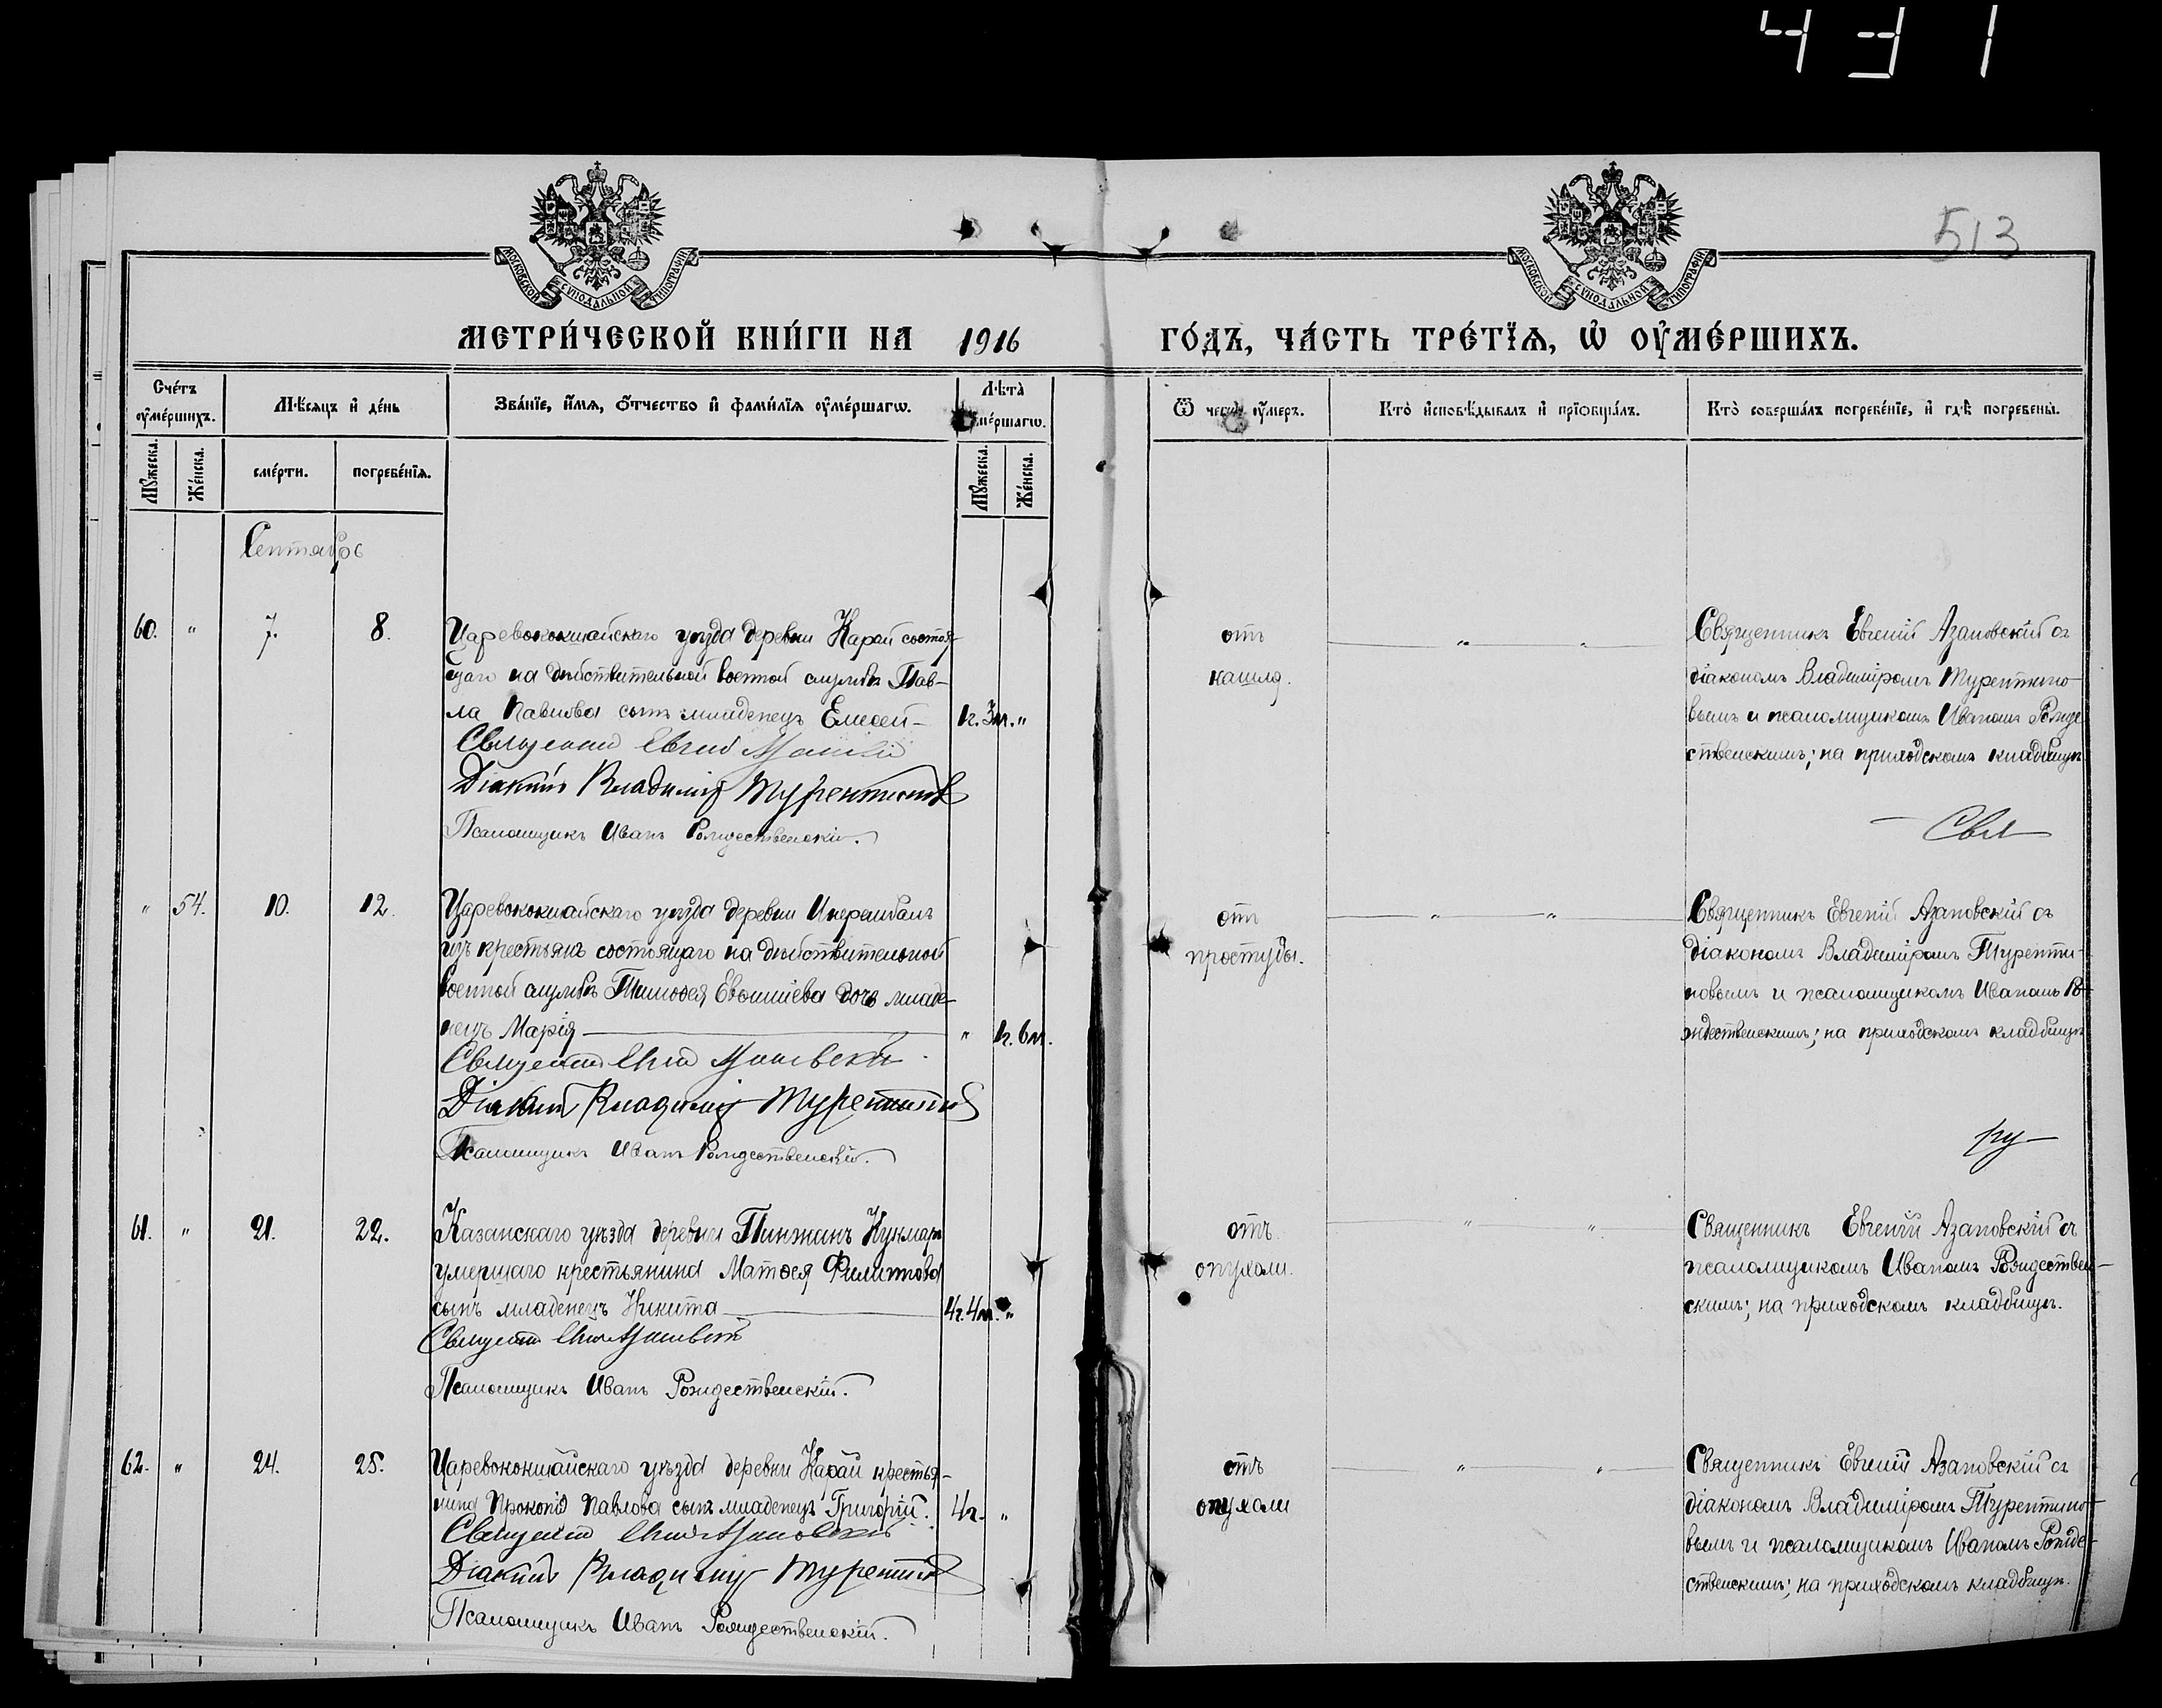 431
513
МОСКОВСКОЙ СѴНОДАЛЬНОЙ ТИПОГРАФІИ
МОСКОВСКОЙ СѴНОДАЛЬНОЙ ТИПОГРАФІИ
МЕТРИ́ЧЕСКОЙ КНИ́ГИ НА 1916 ГО́ДЪ, ЧА́СТЬ ТРЕ́ТЇѦ, Ѡ҆ ОУ҆МЕ́РШИХЪ.
Сче́тъ
оу҆ме́ршихъ.
Мѣ́сяцъ и҆ де́нь
Зва́нїе, и҆́мѧ, ѻ҆́тчество и҆ фами́лїѧ оу҆ме́ршагѡ.
Лѣ̀та
ме́ршагѡ.
Ѿ чегѡ̀ оу҆́меръ.
Кто̀ и҆сповѣ́дывалъ и҆ прїѡбща́лъ.
Кто̀ соверша́лъ погребе́нїе, и҆ гдѣ̀ погребены̀.
Мꙋ́жеска.
Же́нска.
сме́рти.
погребе́нїѧ.
Мꙋ́жеска.
Же́нска.
Сентябрь
60. " 7. 8.
Царевококшайскаго уѣзда деревни Карай состоя-
щаго на дѣйствительной военной службѣ Пав-
ла Павлова сынъ младенецъ Елисей – 1г. 3м. "
Священник Евгеній Азановскій
Діаконъ Владиміръ Турептиновъ
Псаломщикъ Иванъ Рождественскій.
отъ
кашля.
" "
Священникъ Евгеній Азановскій съ
діакономъ Владиміромъ Турептино-
вымъ и псаломщикомъ Иваномъ Рожде-
ственскимъ; на приходскомъ кладбищѣ
– Свя –
" 54. 10. 12.
Царевококшайскаго уѣзда деревни
изъ крестьянъ состоящаго на дѣйствительной
военной службѣ Тимоѳея дочь младе-
нецъ Марія " 1г. 6м.
Священник Евгеній Азановскій
Діаконъ Владиміръ Турептиновъ
Псаломщикъ Иванъ Рождественскій.
отъ
простуды.
" "
Священникъ Евгеній Азановскій съ
діакономъ Владиміромъ Турепти-
новымъ и псаломщикомъ Иваномъ Ро-
ждественскимъ; на приходскомъ кладбищѣ
61. " 21. 22.
Казанскаго уѣзда деревни Пинжанъ Кукмаръ
умершаго крестьянина Матѳея Филиппова
сынъ младенецъ Никита 4г. 4м. "
Священник Евгеній Азановскій
Псаломщикъ Иванъ Рождественскій.
отъ
опухоли.
" "
Священникъ Евгеній Азановскій съ
псаломщикомъ Иваномъ Рождествен-
скимъ; на приходскомъ кладбищѣ.
62. " 24. 25.
Царевококшайскаго уѣзда деревни Карай крестья-
нина Прокопія Павлова сынъ младенецъ Григорій. 4г. "
Священник Евгеній Азановскій
Діаконъ Владиміръ Турептиновъ
Псаломщикъ Иванъ Рождественскій.
отъ
опухоли
" "
Священникъ Евгеній Азановскій съ
діакономъ Владиміромъ Турептино-
вымъ и псаломщикомъ Иваномъ Рожде-
ственскимъ; на приходскомъ кладбищѣ.